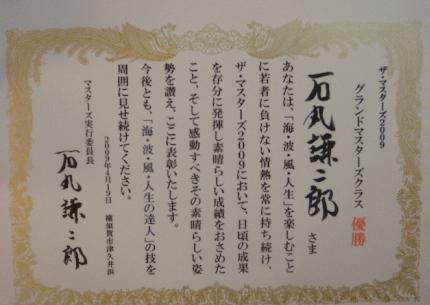 ザ・マスターズ2009
グランドマスターズクラス 優勝
石丸謙二郎 さま
あなたは、「海・波・風・人生」を楽しむこと
に若者に負けない情熱を常に持ち続け、
ザ・マスターズ2009において、日頃の成果
を存分に発揮し素晴らしい成績をおさめた
こと、そして感動すべきその素晴らしい姿
勢を讃え、ここに表彰いたします。
今後とも、「海・波・風・人生の達人」の技を
周囲に見せ続けてください。
2009年4月19日 横須賀市津久井浜
マスターズ実行委員長
石丸謙二郎